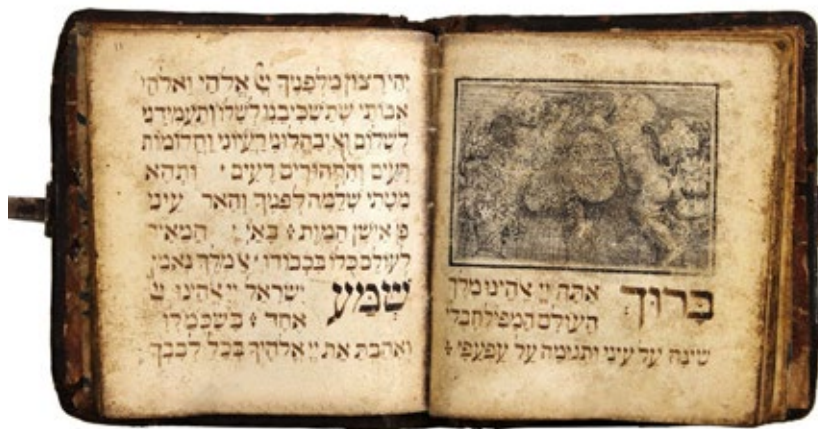 בָּרוּךְ אַתָּה יְיָ אֱלֹהֵינוּ מֶלֶךְ
הָעוֹלָם הַמַּפִּיל חֶבְלֵי
שֵׁינָה עַל עֵינַי וּתְנוּמָה עַל עַפְעַפָּי :
יְהִי רָצוֹן מִלְּפָנֶיךָ יְיָ אֱלֹהַי וֵאלֹהֵי
אֲבוֹתַי שֶׁתַּשְׁכִּיבֵנִי לְשָׁלוֹם וְתַעֲמִידֵנִי
לְשָׁלוֹם וְאַל יְבַהֲלוּנִי רַעְיוֹנַי וַחֲלוֹמוֹת
רָעִים וְהִרְהוּרִים רָעִים ׳ וּתְהֵא
מִטָּתִי שְׁלֵמָה לְפָנֶיךָ וְהָאֵר עֵינַי
פֶּן אִישַׁן הַמָּוֶת : בָּאַ״יְ הַמֵּאִיר
לָעוֹלָם כֻּלּוֹ בִּכְבוֹדוֹ ׳ אֵל מֶלֶךְ נֶאֱמָן
שְׁמַע יִשְׂרָאֵל יְיָ אֱלֹהֵינוּ יְיָ
אֶחָד : בשכמלו
וְאָהַבְתָּ אֵת יְיָ אֱלֹהֶיךָ בְּכָל לְבָבְךָ